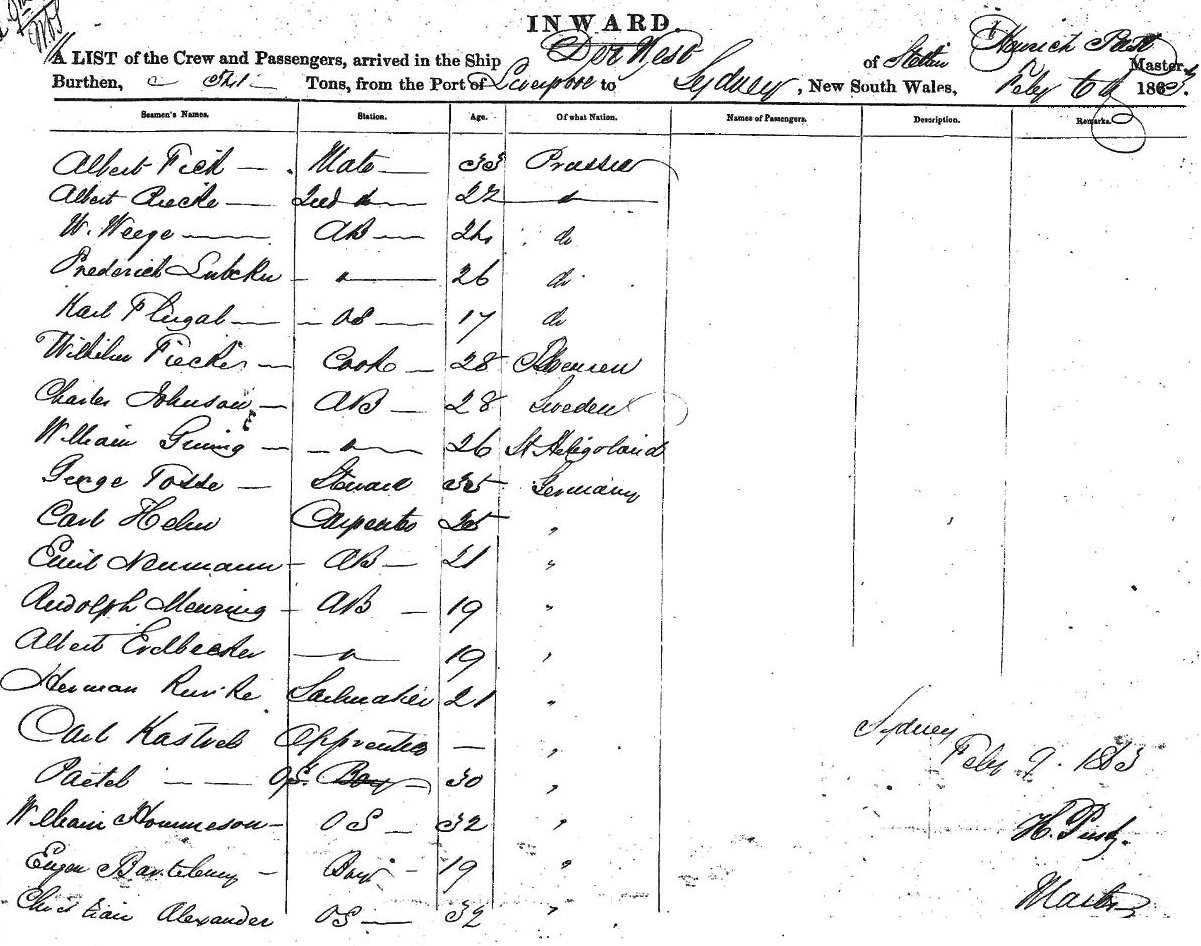 INWARD.
A LIST of the Crew and Passengers, arrived in the Ship Der West of Stettin Master,
Burthen, Tons, from the Port of Liverpool to Sydney, New South Wales, Feby 186
Seamen's Names. Station. Age. Of what Nation. Names of Passengers. Description. Remarks.
Albert Fick — Mate — 33 Prussia
Albert Riecke — 2nd " — 22 — "
W. Weege — AB — 24 do
Frederick Lubcku — " — 26 do
Karl Flugal — OS — 17 do
Wilhilm Fiecker — Cook — 28
Charles Johnson — AB — 28 Sweden
William — " — 26 St Heligoland
George Tosse — Steward 35 Germany
Carl Helm Carpenter "
Emil Neumann — AB — 21 "
Rudolph Meuring — AB — 19 "
Albert Erdbecker — " — 19 "
Herman Sailmaker 21 "
Carl Apprentice — "
Paetel — — OS. Boy — 30 "
William Hommeson — OS — 32 "
Eugen Bartelemy — Boy — 19 "
Christian Alexander OS — 32 "
Sydney
Feby 9. 1863
H.
Master